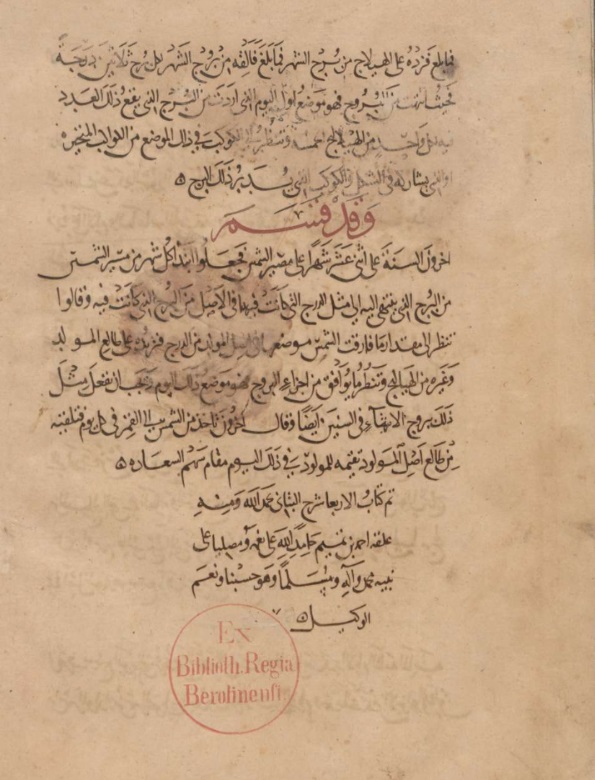 فما بلغ فزده على الهيلاج من برج الشهر فما بلغ فالقه من بروج الشهر لكل برج ثلاثين درجة
فحيث انتهت من البروج فهو موضع اول اليوم الذي اردت من البرج الذي يقع ذلك العدد
فيه لكل واحد من الهيلاج وتنظر الى الكوكب في ذلك الموضع من الكواكب المتحيره
او التي يشاركه في الشكل والكوكب الذي يدبر ذلك البرج ه
وقد قسم
اخرون السنة على اثنى عشر شهرا على مصير الشمس فجعلوا ابتدا كل شهر من مسير الشمس
من البرج الذي ينتهي اليه الى مثل الدرج التي كانت فيها في الاصل من البرج الذي كانت فيه وقالوا
تنظر الى مقدار ما فارقت الشمس موضعها في اصل المولد من الدرج فتزيده على طالع المولد
وغيره من الهيالج وتنظر ما يوافق من اجزاء البروج فهو موضع ذلك اليوم ويجب ان نفعل مثل
ذلك ببروج الانتهاء في السنين ايضا وقال اخرون تاخذ من الشمس الى القمر في كل يوم فتلقيه
من طالع اصل المولود تقيمه للمولود في ذلك اليوم مقام سهم السعاده ه
تم كتاب الاربعا شرح الثاني بحمد الله ومنه
علقه احمد بن تميم حامدا لله على نعمه ومصليا على
نبيه محمد وآله ومسلما وهو حسبنا ونعم
الوكيل ه
Ex
Biblioth. Regia
Berolinensi.